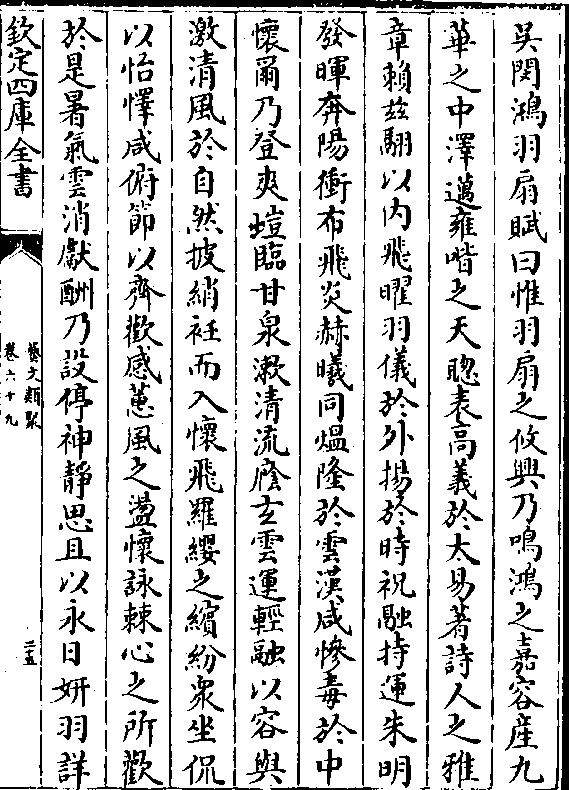 吳閔鴻羽扇賦曰惟羽扇之攸興乃鳴鴻之嘉容産九
華之中澤邁雍喈之天聰表高義於太易著詩人之雅
章賴玆翮以内飛曜羽儀於外揚於時祝融持運朱明
發暉奔陽衝布飛炎赫曦同熅隆於雲漢咸慘毒於中
懷爾乃登爽塏臨甘泉漱清流䕃玄雲運輕融以容與
激清風於自然披綃衽而入懷飛羅纓之繽紛衆坐侃
以怡懌咸俯節以齊歡感蕙風之盪懷詠棘心之所歡
於是暑氣雲消獻酬乃設停神靜思且以永日妍羽詳
欽定四庫全書
藝文類聚
卷六十九
二五